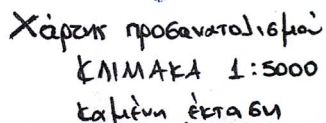 Χάρτης προσανατολισμού
ΚΛΙΜΑΚΑ 1:5000
καμένη έκταση